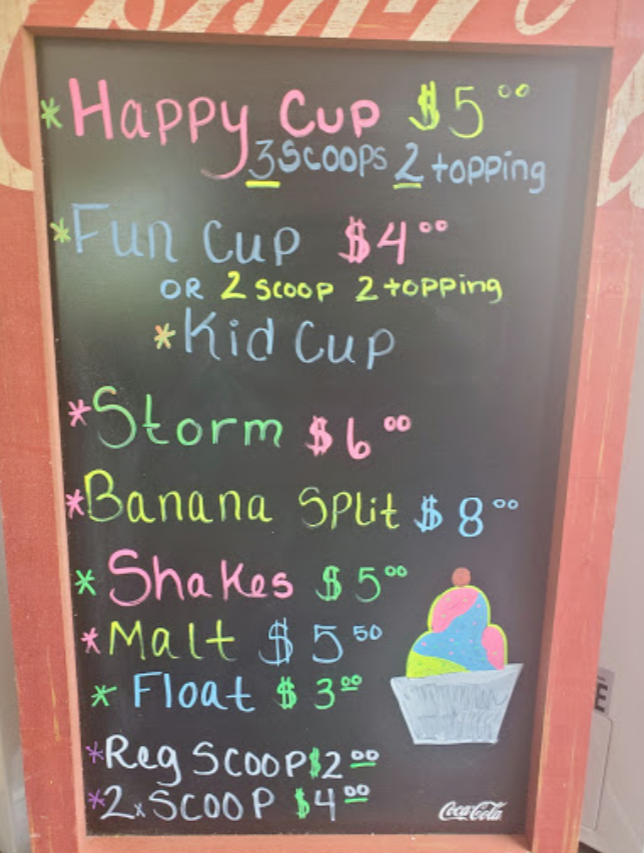 *Happy Cup $5⁰⁰
3 Scoops 2 topping
*Fun Cup $4⁰⁰
OR 2 Scoop 2 topping
*Kid Cup
*Storm $6⁰⁰
*Banana Split $8⁰⁰
*Shakes $5⁰⁰
*Malt $5⁵⁰
*Float $3⁰⁰
*Reg Scoop $2⁰⁰
*2x Scoop $4⁰⁰
Coca-Cola